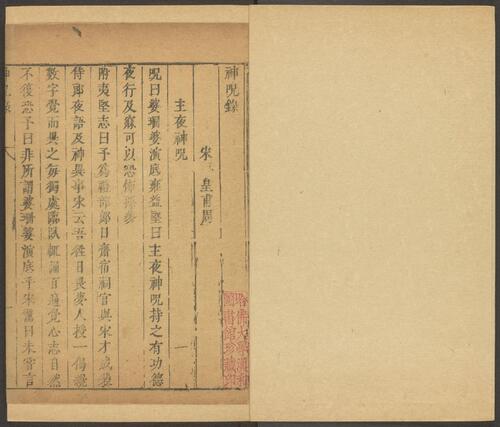 神咒錄
宋 皇甫周
主夜神咒
咒曰婆珊婆演底雍益堅曰主夜神咒持之有功德
夜行及寐可以恐怖惡夢
附夷堅志曰予為禮部郎日齋宿祠官與宋才成
侍郎夜語及神異事宋云吾往日長夢人授一偈
數字覺而異之每獨處臨臥輒誦百遍覺心志自然
不復恐予曰非所謂婆珊婆演底乎宋驚曰未嘗言
哈佛大學漢和
圖書館珍藏印